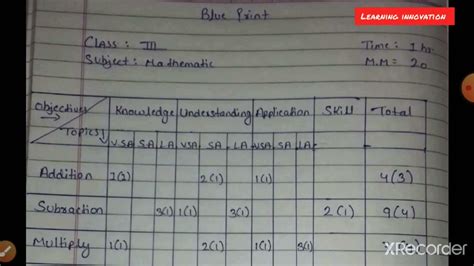 Learning innovation
Blue Print
Class : III Time : 1 hr.
Subject : Mathematic M.M = 20
Objectives Knowledge Understanding Application Skill Total
Topics VSA SA LA VSA SA LA VSA SA LA
Addition 1(1) 2(1) 1(1) 4(3)
Subraction 3(1) 1(1) 3(1) 2(1) 9(4)
Multiply 1(1) 2(1) 1(1) 3(1)
XRecorder